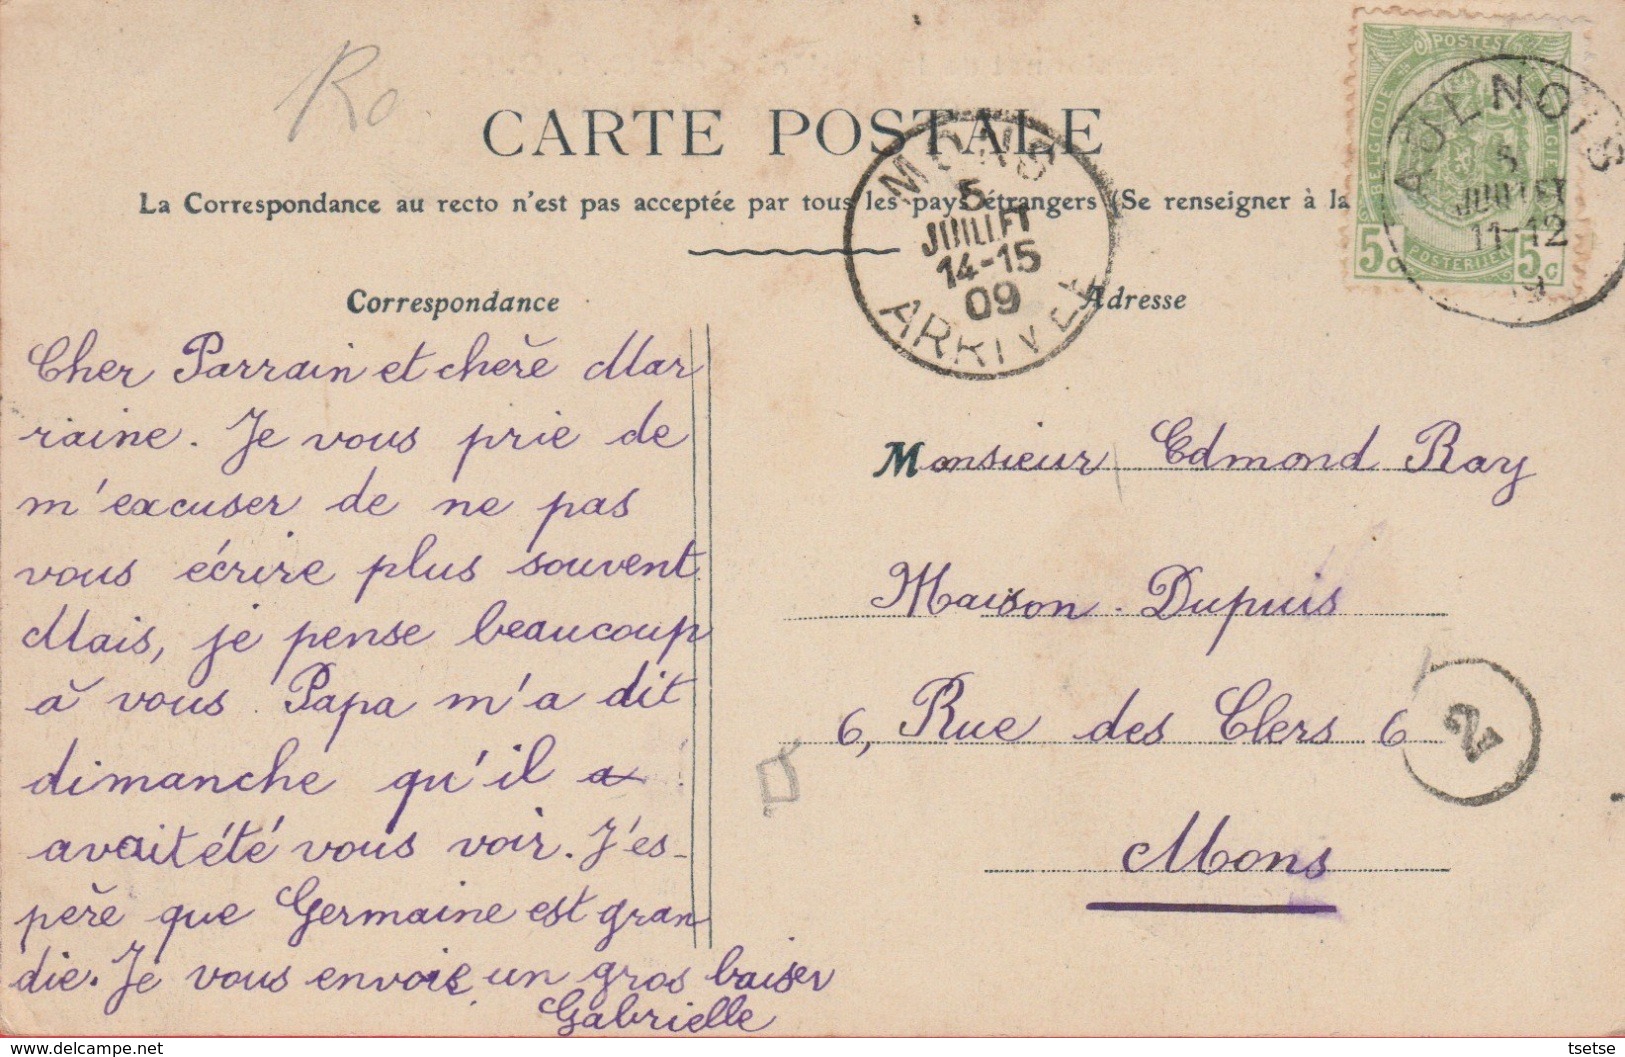 Ro
CARTE POSTALE
La Correspondance au recto n'est pas acceptée par tous les pays étrangers (Se renseigner à la
Correspondance
Adresse
MONS
5
JUILLET
14-15
09
ARRIVEE
POSTES
BELGIQUE
BELGIE
5c 5c
POSTERIJEN
AULNOIS
5
JUILLET
11-12
Cher Parrain et chère Mar
raine. Je vous prie de
m'excuser de ne pas
vous écrire plus souvent
Mais, je pense beaucoup
à vous. Papa m'a dit
dimanche qu'il a
avait été vous voir. J'es-
père que Germaine est gran
die. Je vous envoie un gros baiser
Gabrielle
Monsieur Edmond Ray
Maison Dupuis
6, Rue des Clers 6
2
Mons
tsetse